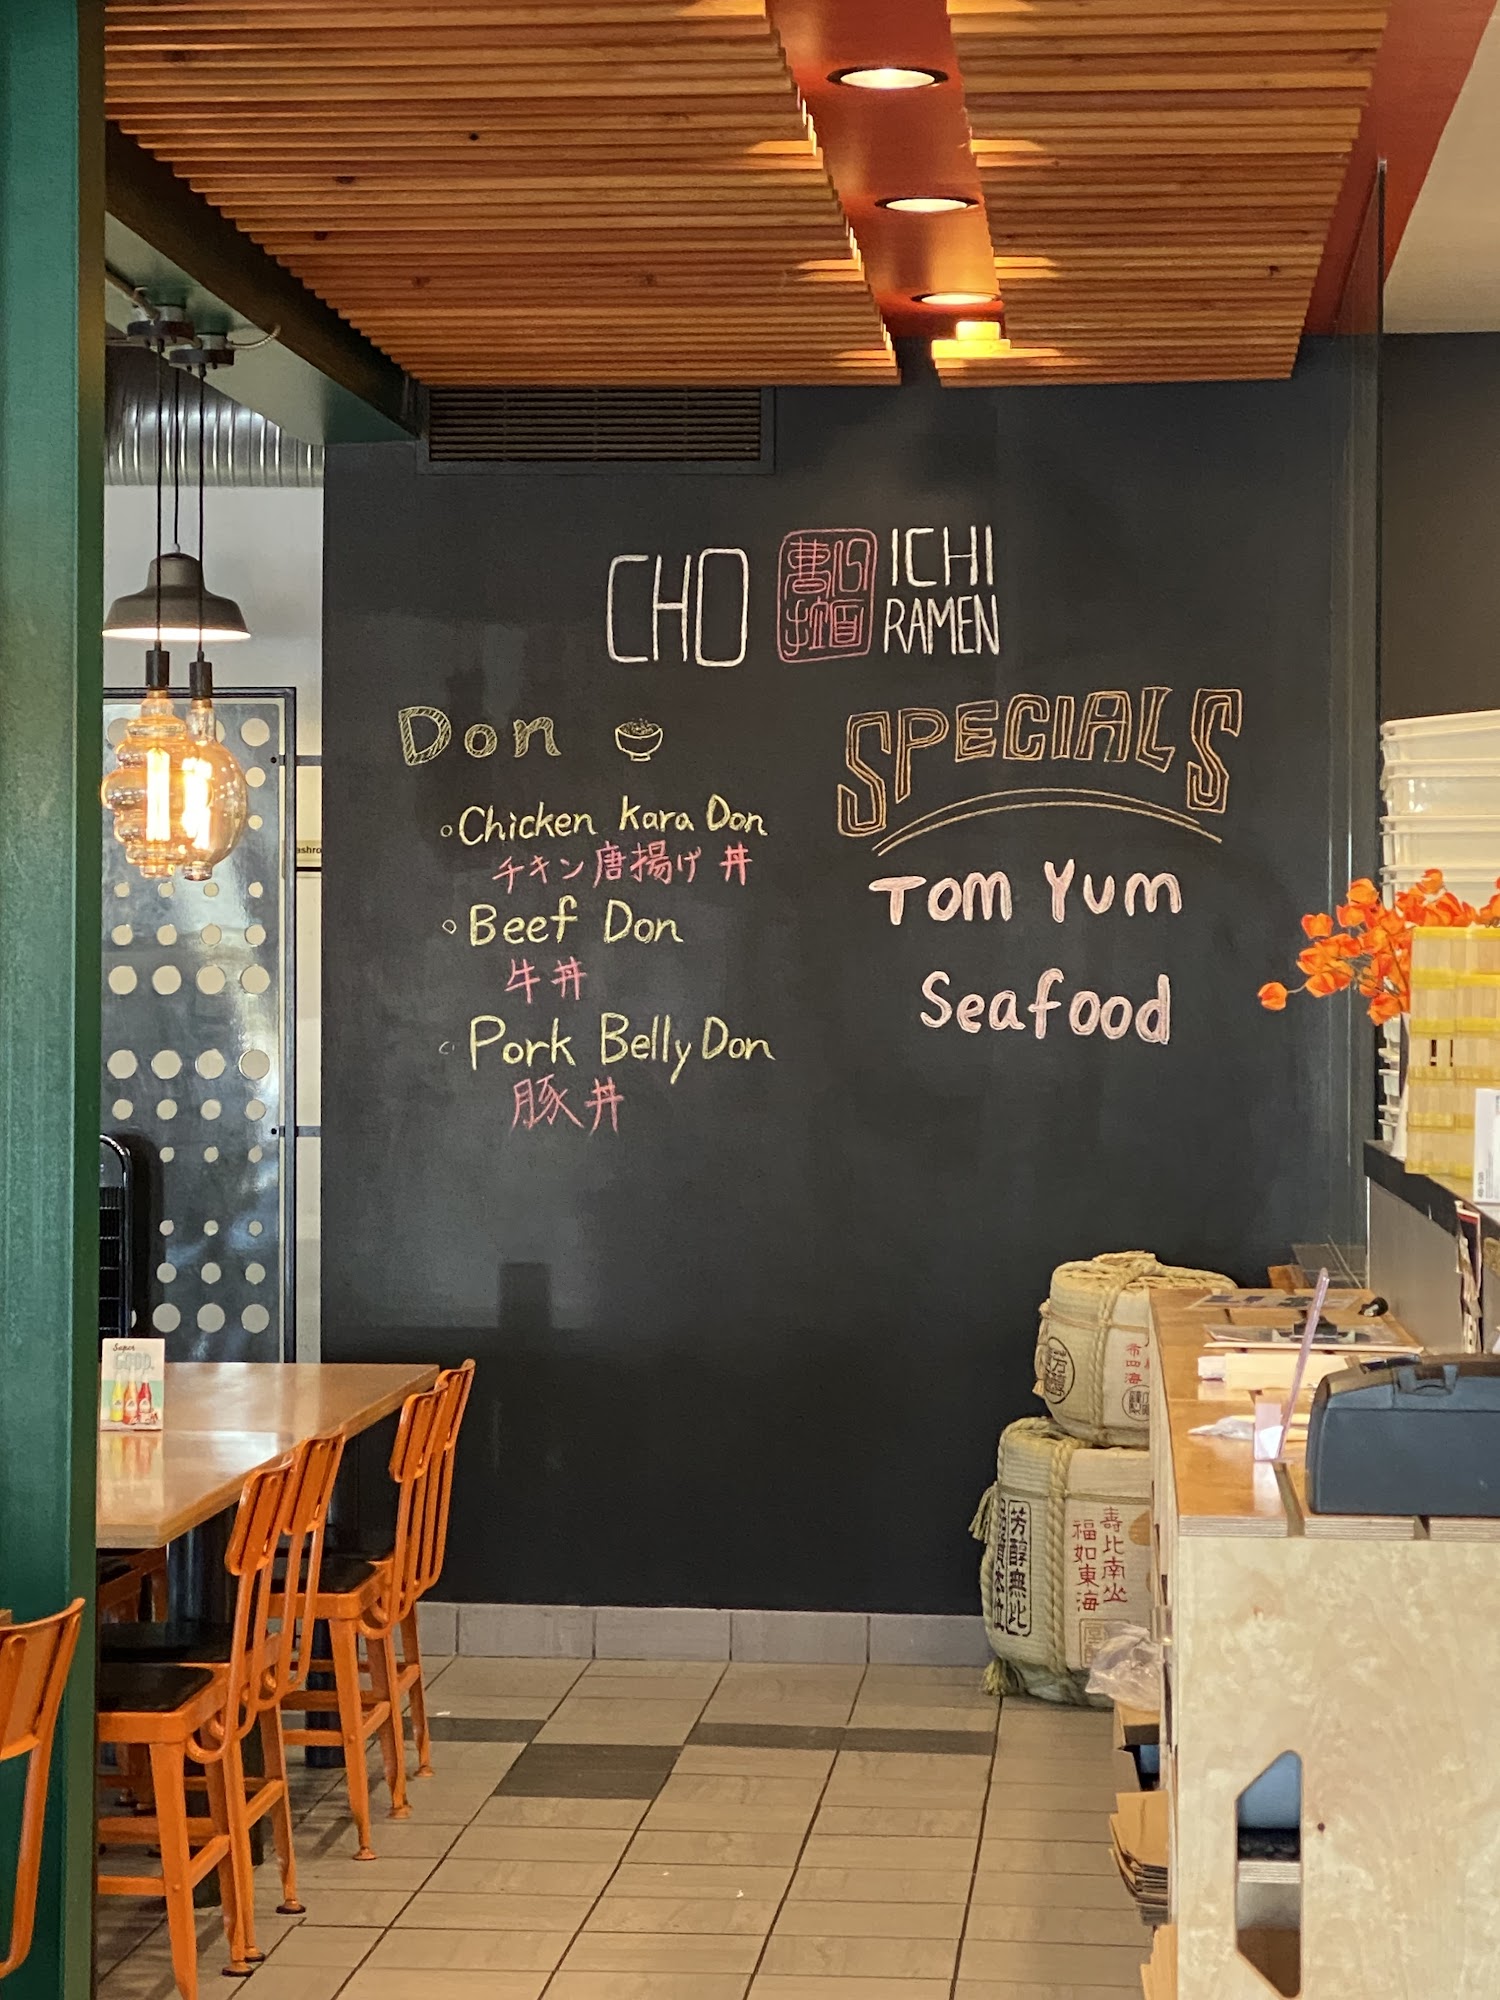 CHO
ICHI
RAMEN
Don
SPECIALS
Chicken Kara Don
チキン唐揚げ丼
Beef Don
牛丼
Pork Belly Don
豚丼
Tom Yum
Seafood
Super
GOOD.
ashro
布四海
芳醇無比
壽比南山
福如東海